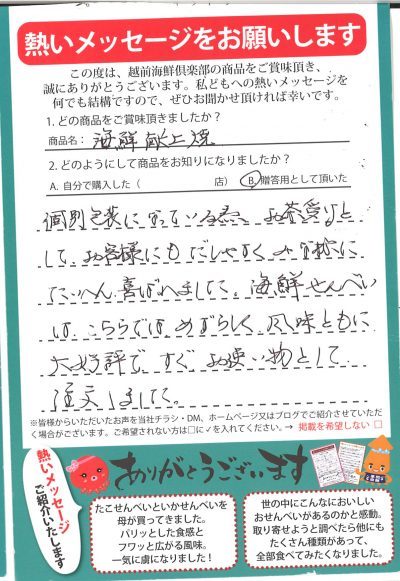 熱いメッセージをお願いします
この度は、越前海鮮倶楽部の商品をご賞味頂き、
誠にありがとうございます。私どもへの熱いメッセージを
何でも結構ですので、ぜひお聞かせ頂ければ幸いです。
1. どの商品をご賞味頂きましたか?
商品名: 海鮮献上焼
2. どのようにして商品をお知りになりましたか?
A. 自分で購入した ( 店) B. 贈答用として頂いた
個別包装になっている為、お茶受けと
して、お客様にもだしやすく、皆様に
たいへん喜ばれました。海鮮せんべい
は、こちらではめずらしく、風味ともに
大好評で、すぐお使い物として
注文しました。
※皆様からいただいたお声を当社チラシ・DM、ホームページ又はブログでご紹介させていただ
く場合がございます。ご希望されない方は□に✓を入れてください。→ 掲載を希望しない □
熱いメッセージ
ご紹介いたします
ありがとうございます
たこせんべいといかせんべいを
母が買ってきました。
パリッとした食感と
フワッと広がる風味。
一気に虜になりました!
世の中にこんなにおいしい
おせんべいがあるのかと感動。
取り寄せようと調べたら他にも
たくさん種類があって、
全部食べてみたくなりました。